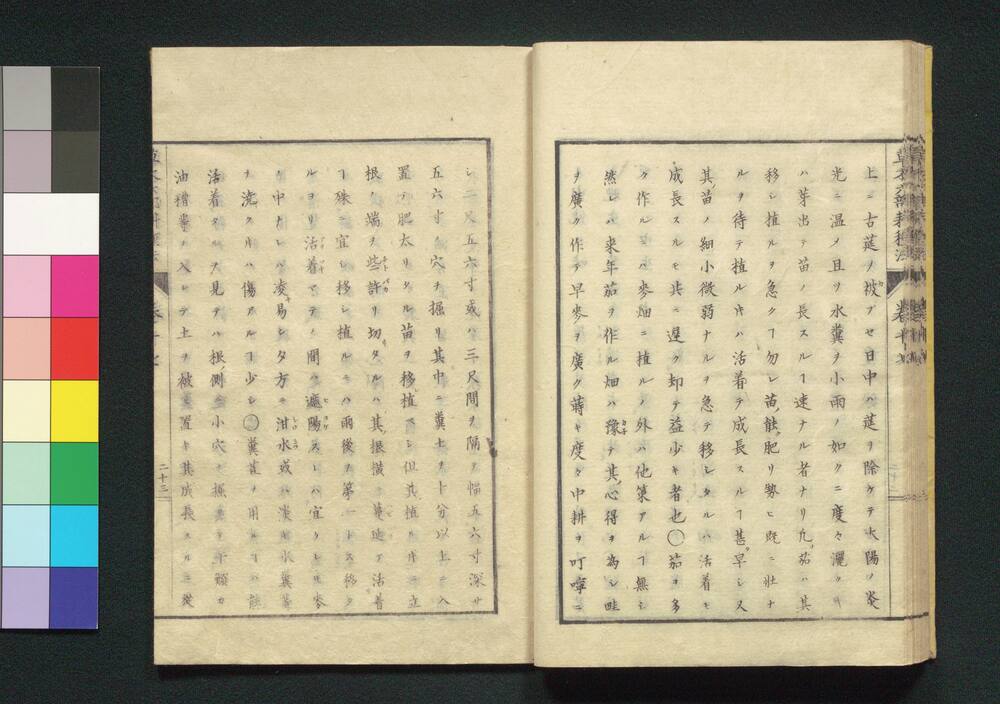 上ニ古莚ヲ被ブセ日中ハ莚ヲ除ケテ太陽ノ炎
光ニ温メ且ツ水糞ヲ小雨ノ如クニ度々灑クキ
ハ芽出テ苗ノ長スルヿ速ナル者ナリ凡茄ハ其
移シ植ルヲ急クヿ勿レ苗能肥リ勢ヒ既ニ壮ナ
ルヲ待テ植ルキハ活着テ成長スルヿ甚早シス
其苗ノ細小微弱ナルヲ急テ移シタルハ活着モ
成長スルモ共ニ遅ク却テ益少キ者也〇茄ヲ多
ク作ルニハ麥畑ニ植ルノ外ハ他策アルヿ無シ
然レバ来年茄ヲ作ル畑ハ豫テ其心得ヲ為シ畦
ヲ廣ク作テ早麥ヲ廣ク蒔キ度々中耕ヲ叮嚀ニ
シ二尺五六寸或ハ三尺間ヲ隔テ幅五六寸深サ
五六寸ノ穴ヲ掘リ其中ニ糞土ヲト分以上モ入
置テ肥太リタル苗ヲ移植ベシ但其植ルキニ立
根ノ端ヲ些許リ切タルハ其根横ニ蔓延テ活着
ヿ殊ニ宜シ移シ植ルニハ雨後ヲ第一トス移タ
ルヨリ活着マデノ間ク遮陽スレハ宜クレ𪜈麥
ノ中ナレハ凌易シタ方モ泔水或ハ淡キ水糞等
ヲ澆クキハ傷アルヿ少シ〇糞苴ヲ用ルヿハ能
活着タルヲ見テハ根側ニ小穴ヲ掘
油糟等ヲ入レテ土ヲ被置キ其成長スルニ従
卷十七
二十三